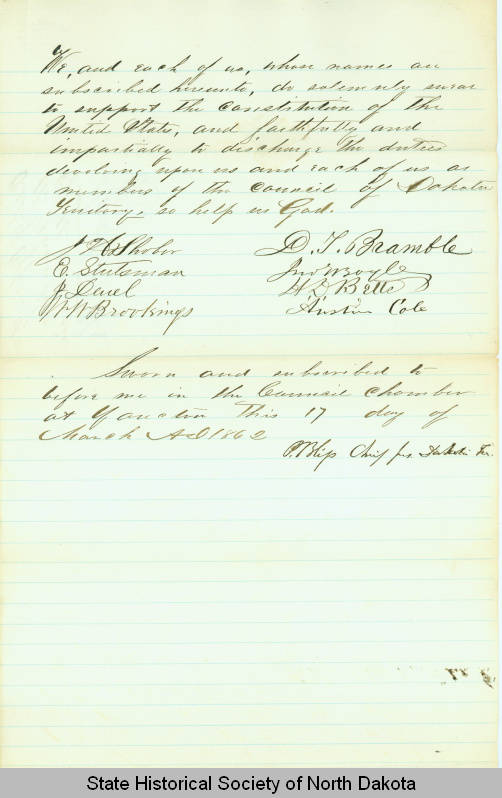 We, and each of us, whose names are
subscribed hereunto, do solemnly swear
to support the Constitution of the
United States, and faithfully and
impartially to discharge the duties
devolving upon us and each of us as
members of the Council of Dakota
Territory, so help us God.
J H Shober D. T. Bramble
E. Stutsman Jno W Boyle
J Deuel H D Betts
W W Brookings Austin Cole
Sworn and subscribed to
before me in the Council Chamber
at Yancton This 17 day of
March AD 1862
P. Bliss Chief Jus Dakota Ter.
State Historical Society of North Dakota